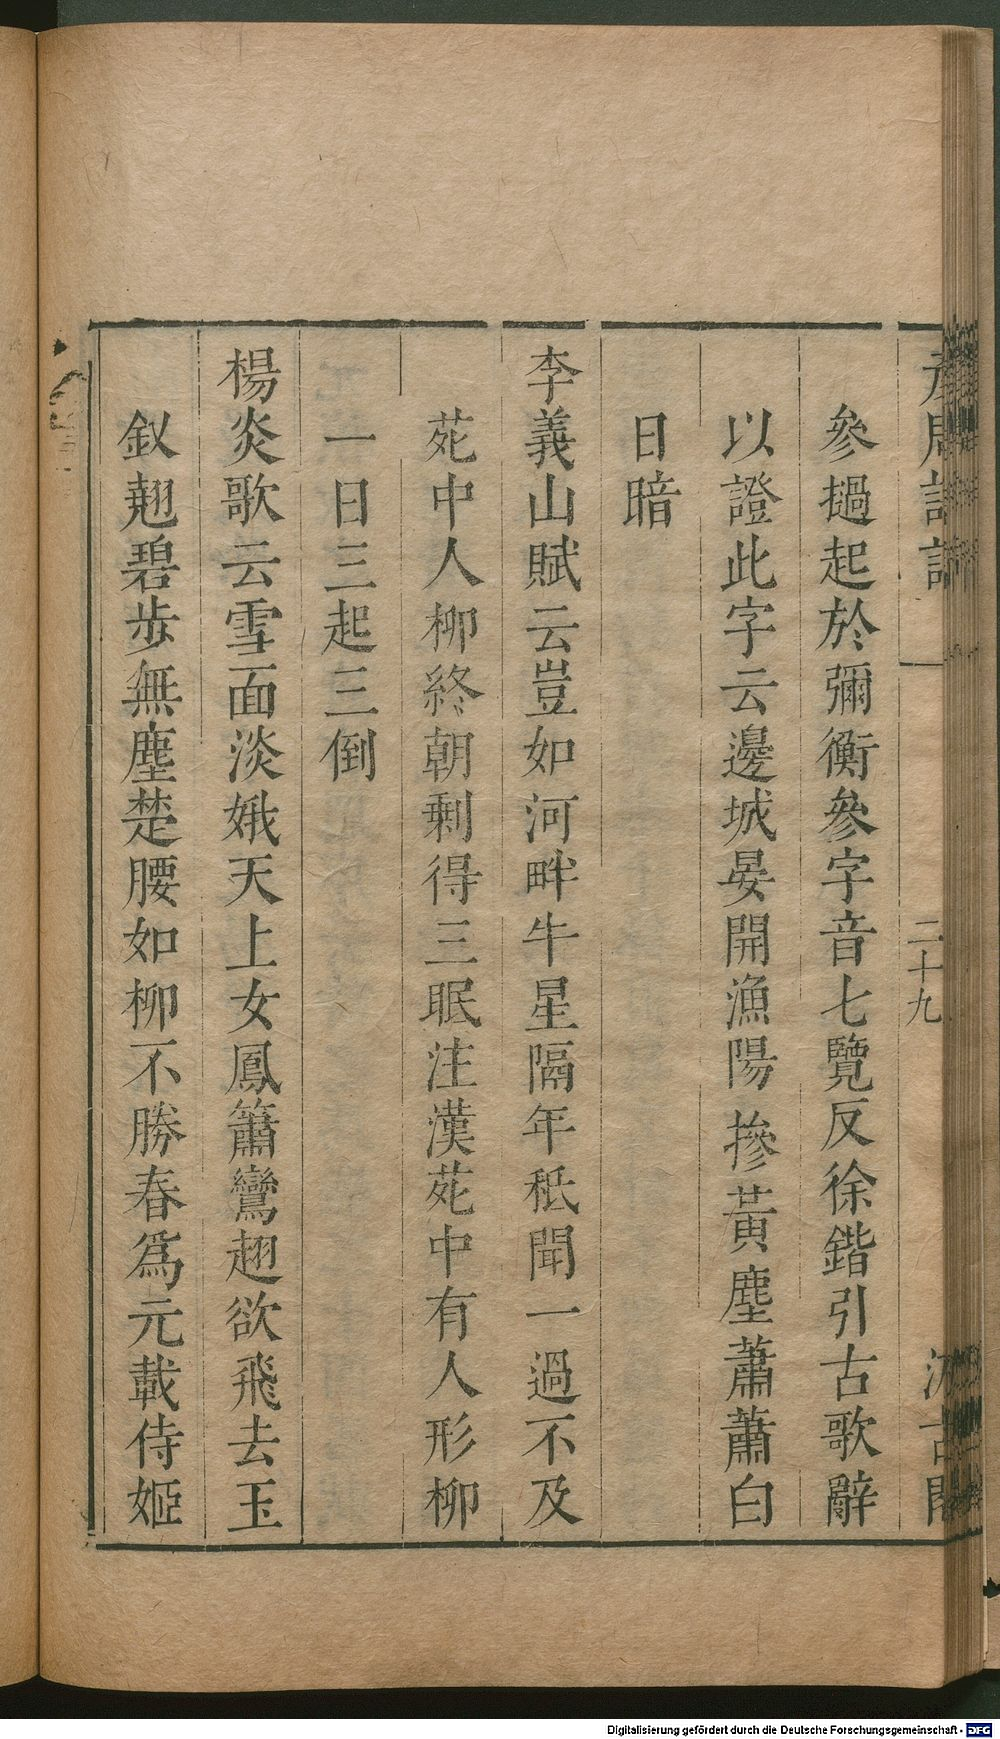 二十九
參撾起於彌衡參字音七覽反徐鍇引古歌辭
以證此字云邊城晏開漁陽摻黃塵蕭蕭白
日暗
李義山賦云豈如河畔牛星隔年秖聞一過不及
苑中人柳終朝剩得三眠注漢苑中有人形柳
一日三起三倒
楊炎歌云雪面淡娥天上女鳳簫鸞翅欲飛去玉
釵翹碧步無塵楚腰如柳不勝春爲元載侍姬
Digitalisierung gefördert durch die Deutsche Forschungsgemeinschaft - DFG